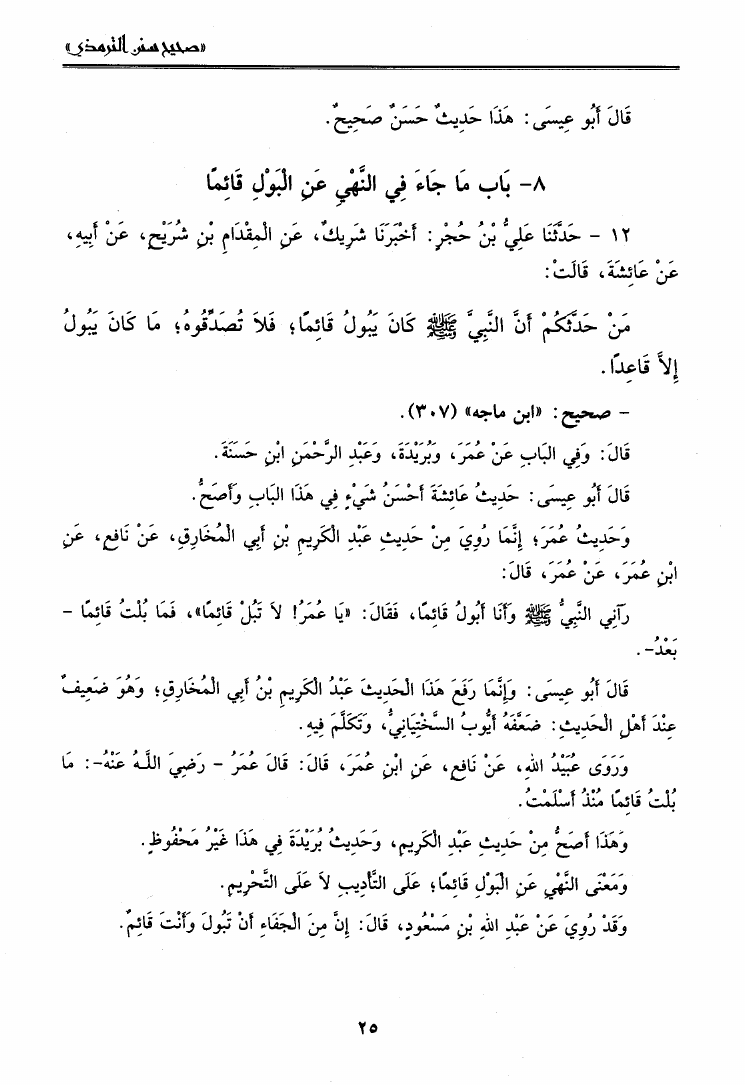 «صحيح سنن الترمذي»
قَالَ أَبُو عِيسَى: هَذَا حَدِيثٌ حَسَنٌ صَحِيحٌ.
٨- بَاب مَا جَاءَ فِي النَّهْيِ عَنِ الْبَوْلِ قَائِمًا
١٢ - حَدَّثَنَا عَلِيُّ بْنُ حُجْرٍ: أَخْبَرَنَا شَرِيكٌ، عَنِ الْمِقْدَامِ بْنِ شُرَيْحٍ، عَنْ أَبِيهِ،
عَنْ عَائِشَةَ، قَالَتْ:
مَنْ حَدَّثَكُمْ أَنَّ النَّبِيَّ ﷺ كَانَ يَبُولُ قَائِمًا؛ فَلاَ تُصَدِّقُوهُ؛ مَا كَانَ يَبُولُ
إِلاَّ قَاعِدًا.
- صحيح: «ابن ماجه» (٣٠٧).
قَالَ: وَفِي الْبَاب عَنْ عُمَرَ، وَبُرَيْدَةَ، وَعَبْدِ الرَّحْمَنِ ابْنِ حَسَنَةَ.
قَالَ أَبُو عِيسَى: حَدِيثُ عَائِشَةَ أَحْسَنُ شَيْءٍ فِي هَذَا الْبَاب وَأَصَحُّ.
وَحَدِيثُ عُمَرَ؛ إِنَّمَا رُوِيَ مِنْ حَدِيثِ عَبْدِ الْكَرِيمِ بْنِ أَبِي الْمُخَارِقِ، عَنْ نَافِعٍ، عَنِ
ابْنِ عُمَرَ، عَنْ عُمَرَ، قَالَ:
رَآنِي النَّبِيُّ ﷺ وَأَنَا أَبُولُ قَائِمًا، فَقَالَ: «يَا عُمَرُ! لاَ تَبُلْ قَائِمًا»، فَمَا بُلْتُ قَائِمًا -
بَعْدُ-.
قَالَ أَبُو عِيسَى: وَإِنَّمَا رَفَعَ هَذَا الْحَدِيثَ عَبْدُ الْكَرِيمِ بْنُ أَبِي الْمُخَارِقِ؛ وَهُوَ ضَعِيفٌ
عِنْدَ أَهْلِ الْحَدِيثِ: ضَعَّفَهُ أَيُّوبُ السَّخْتِيَانِيُّ، وَتَكَلَّمَ فِيهِ.
وَرَوَى عُبَيْدُ اللهِ، عَنْ نَافِعٍ، عَنِ ابْنِ عُمَرَ، قَالَ: قَالَ عُمَرُ - رَضِيَ اللَّهُ عَنْهُ-: مَا
بُلْتُ قَائِمًا مُنْذُ أَسْلَمْتُ.
وَهَذَا أَصَحُّ مِنْ حَدِيثِ عَبْدِ الْكَرِيمِ، وَحَدِيثُ بُرَيْدَةَ فِي هَذَا غَيْرُ مَحْفُوظٍ.
وَمَعْنَى النَّهْيِ عَنِ الْبَوْلِ قَائِمًا؛ عَلَى التَّأْدِيبِ لاَ عَلَى التَّحْرِيمِ.
وَقَدْ رُوِيَ عَنْ عَبْدِ اللهِ بْنِ مَسْعُودٍ، قَالَ: إِنَّ مِنَ الْجَفَاءِ أَنْ تَبُولَ وَأَنْتَ قَائِمٌ.
٢٥